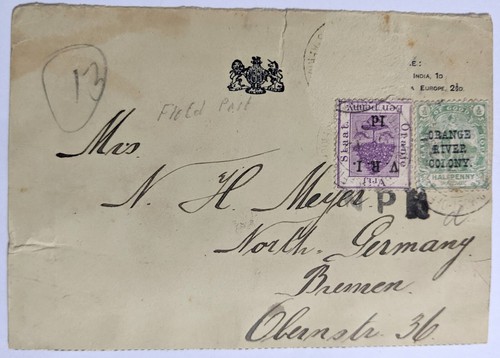 13
E:
INDIA, 1D
EUROPE, 2½D.
Field Post
Mrs.
N. H. Meyer
North-Germany
Bremen.
Obernstr. 36.
Oranje
Vrij
Staat
Een Penny
V.R.I.
1d
ORANGE
RIVER
COLONY.
HALFPENNY
P R